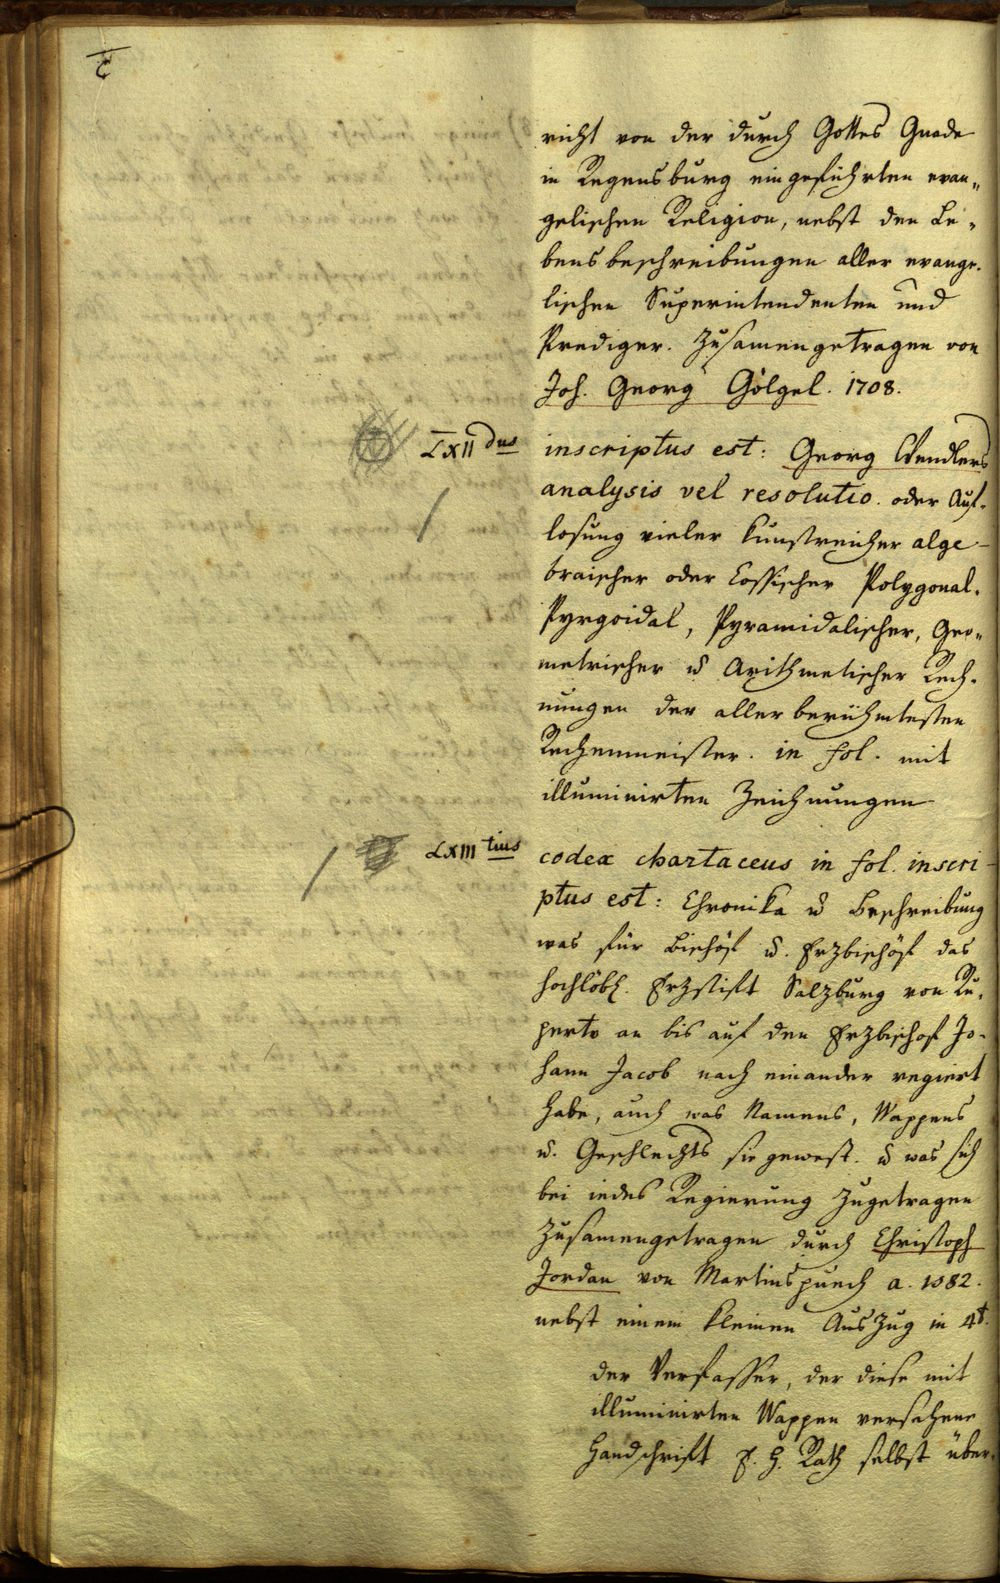 richt von der durch Gottes Gnade
in Regensburg eingeführten evan„
gelischen Religion, nebst den Le„
bensbeschreibungen aller evange„
lischen Superintendenten und
Prediger. Zusamengetragen von
Joh. Georg Gölgel. 1708.
LXII dus inscriptus est: Georg Wendlers
analysis vel resolutio. oder Auf„
losung vieler kunstreicher alge„
braischer oder Cossischer Polygonal„
Pyrgoidal, Pyramidalischer, Geo„
metrischer u Arithmetischer Rech„
nungen der allerberühmtesten
Rechenmeister. in fol. mit
illuminirten Zeichnungen
LXIII tius codex chartaceus in fol. inscri-
ptus est: Chronika u Beschreibung
was für Bischöf u. Erzbischöf das
hochlöbl. Erzstift Salzburg von Ru„
perto an bis auf den Erzbischof Jo„
hann Jacob nach einander regiert
habe, auch was Namens, Wappens
u. Geschlechts sie gewest. u was sich
bei iedes Regierung zugetragen
zusamengetragen durch Christoph
Jordan von Martinspuech a. 1582.
nebst einem kleinen Auszug in 4t.
der Verfasser, der diese mit
illuminirten Wappen versehene
Handschrift E. H. Rath selbst über„